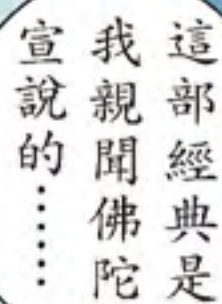 這部經典是
我親聞佛陀
宣說的⋯⋯